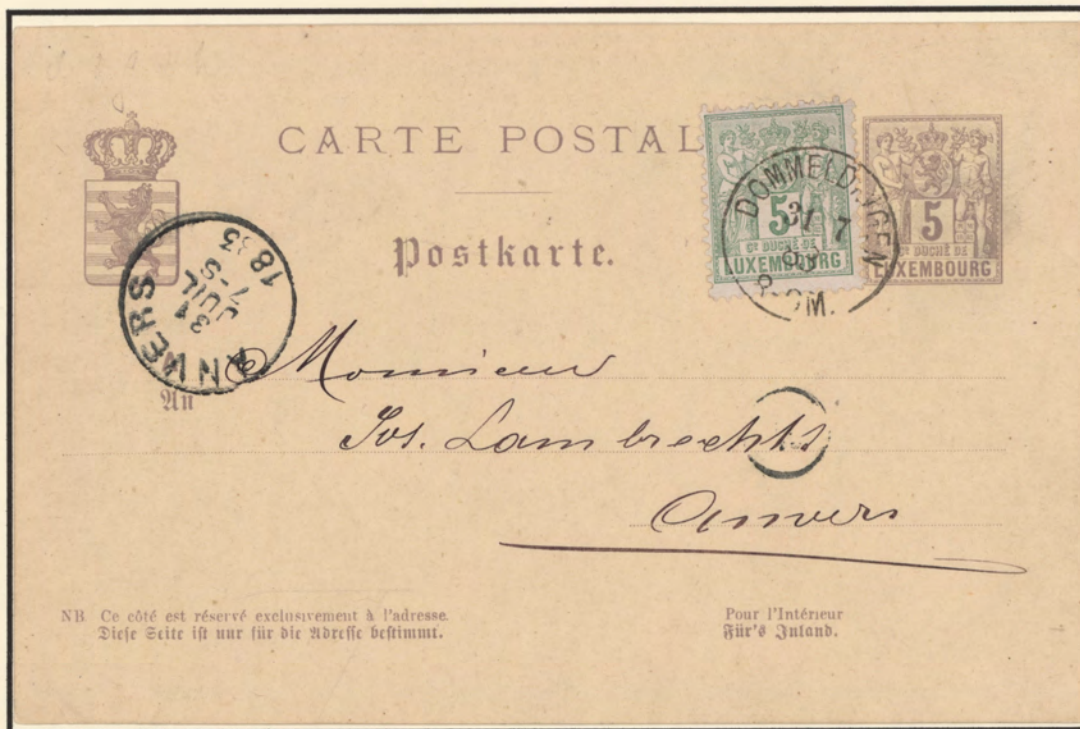 CARTE POSTAL
Postkarte.
DOMMELDINGEN
31 7
83
8-9M.
5
GD DUCHÉ DE
LUXEMBOURG
5
GD DUCHÉ DE
LUXEMBOURG
ANVERS
31
JUIL
7-S
1883
An
Monsieur
Jos. Lambrechts
Anvers
NB Ce côté est réservé exclusivement à l'adresse.
Diese Seite ist nur für die Adresse bestimmt.
Pour l'Intérieur
Für's Inland.